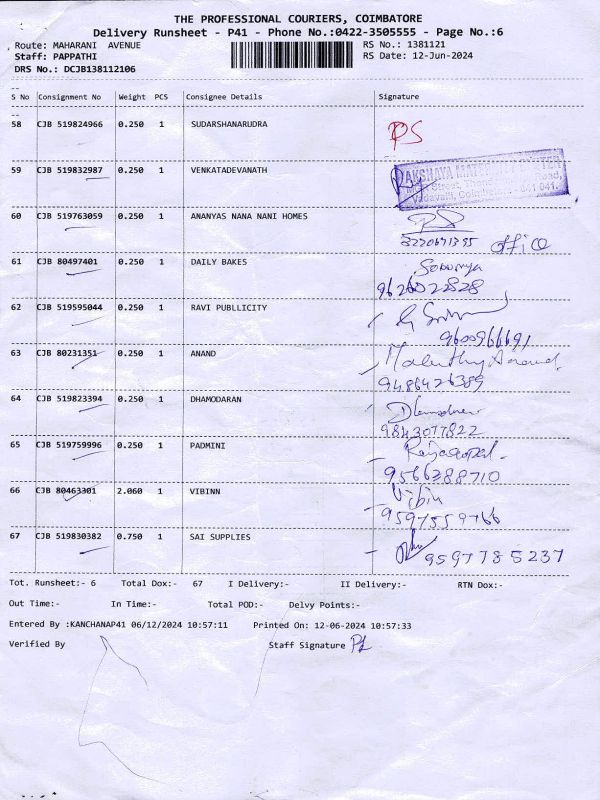 THE PROFESSIONAL COURIERS, COIMBATORE
Delivery Runsheet - P41 - Phone No.:0422-3505555 - Page No.:6
Route: MAHARANI AVENUE RS No.: 1381121
Staff: PAPPATHI RS Date: 12-Jun-2024
DRS No.: DCJB138112106
S No Consignment No Weight PCS Consignee Details Signature
58 CJB 519824966 0.250 1 SUDARSHANARUDRA PS
59 CJB 519832987 0.250 1 VENKATADEVANATH
60 CJB 519763059 0.250 1 ANANYAS NANA NANI HOMES
office
61 CJB 80497401 0.250 1 DAILY BAKES Sowmya
62 CJB 519595044 0.250 1 RAVI PUBLLICITY
9600966691
63 CJB 80231351 0.250 1 ANAND
9486426389
64 CJB 519823394 0.250 1 DHAMODARAN
9843077822
65 CJB 519759996 0.250 1 PADMINI Rajagopal
9566388710
66 CJB 80463301 2.060 1 VIBINN Vibin
9597559766
67 CJB 519830382 0.750 1 SAI SUPPLIES 9597785237
Tot. Runsheet:- 6 Total Dox:- 67 I Delivery:- II Delivery:- RTN Dox:-
Out Time:- In Time:- Total POD:- Delvy Points:-
Entered By :KANCHANAP41 06/12/2024 10:57:11 Printed On: 12-06-2024 10:57:33
Verified By Staff Signature